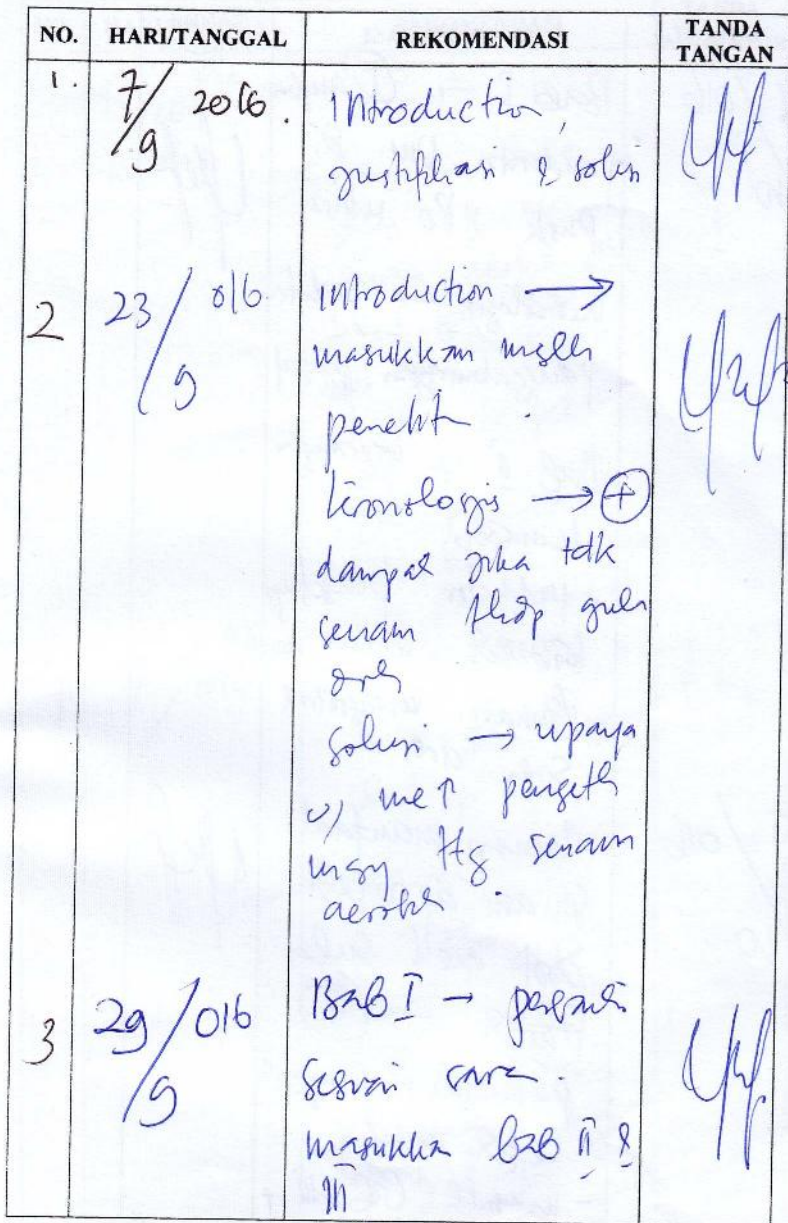 NO. HARI/TANGGAL REKOMENDASI TANDA TANGAN
1. 7/9 2016. Introduction,
justifikasi & solusi
2 23/9 016 introduction →
masukkan
penelit
kronologis → +
dampak jika tdk
senam thdp gula
drh
solusi → upaya
u/ me↑ pengeth
ttg senam
aerobik.
3 29/9 016 Bab I →
sesuai saran.
masukkan bab II &
III